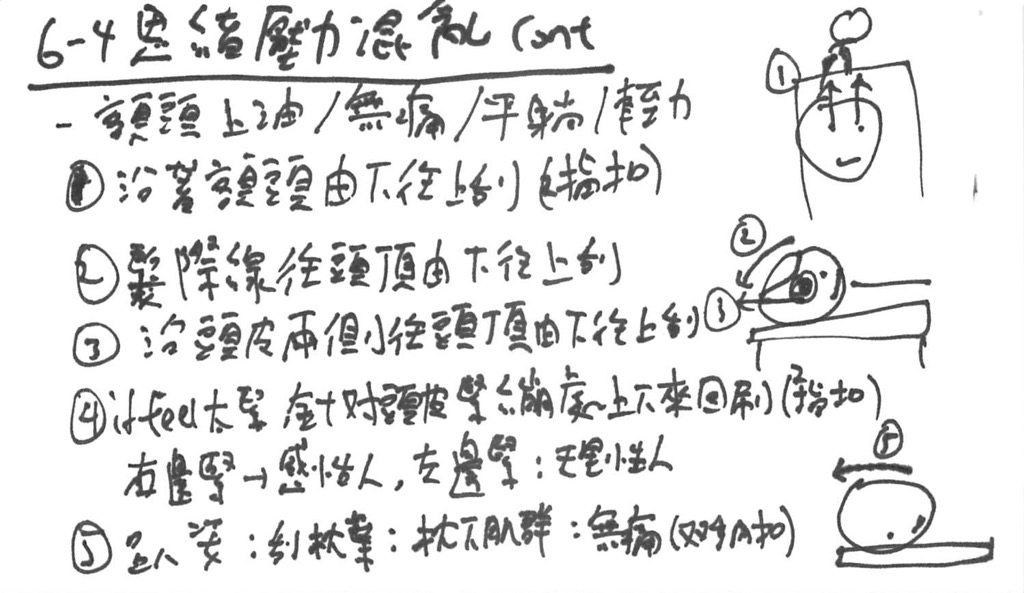 6-4 思緒壓力混亂 cont
- 額頭上油/無痛/平躺/輕力
① 沿著額頭由下往上刮 (指扣)
② 髮際線往頭頂由下往上刮
③ 沿頭皮兩側往頭頂由下往上刮
④ if feel 太緊 針对頭皮緊繃處上下來回刷 (指扣)
右邊緊→感性人, 左邊緊:理性人
⑤ 趴姿:刮枕葉:枕下肌群:無痛
①
②
③
⑤